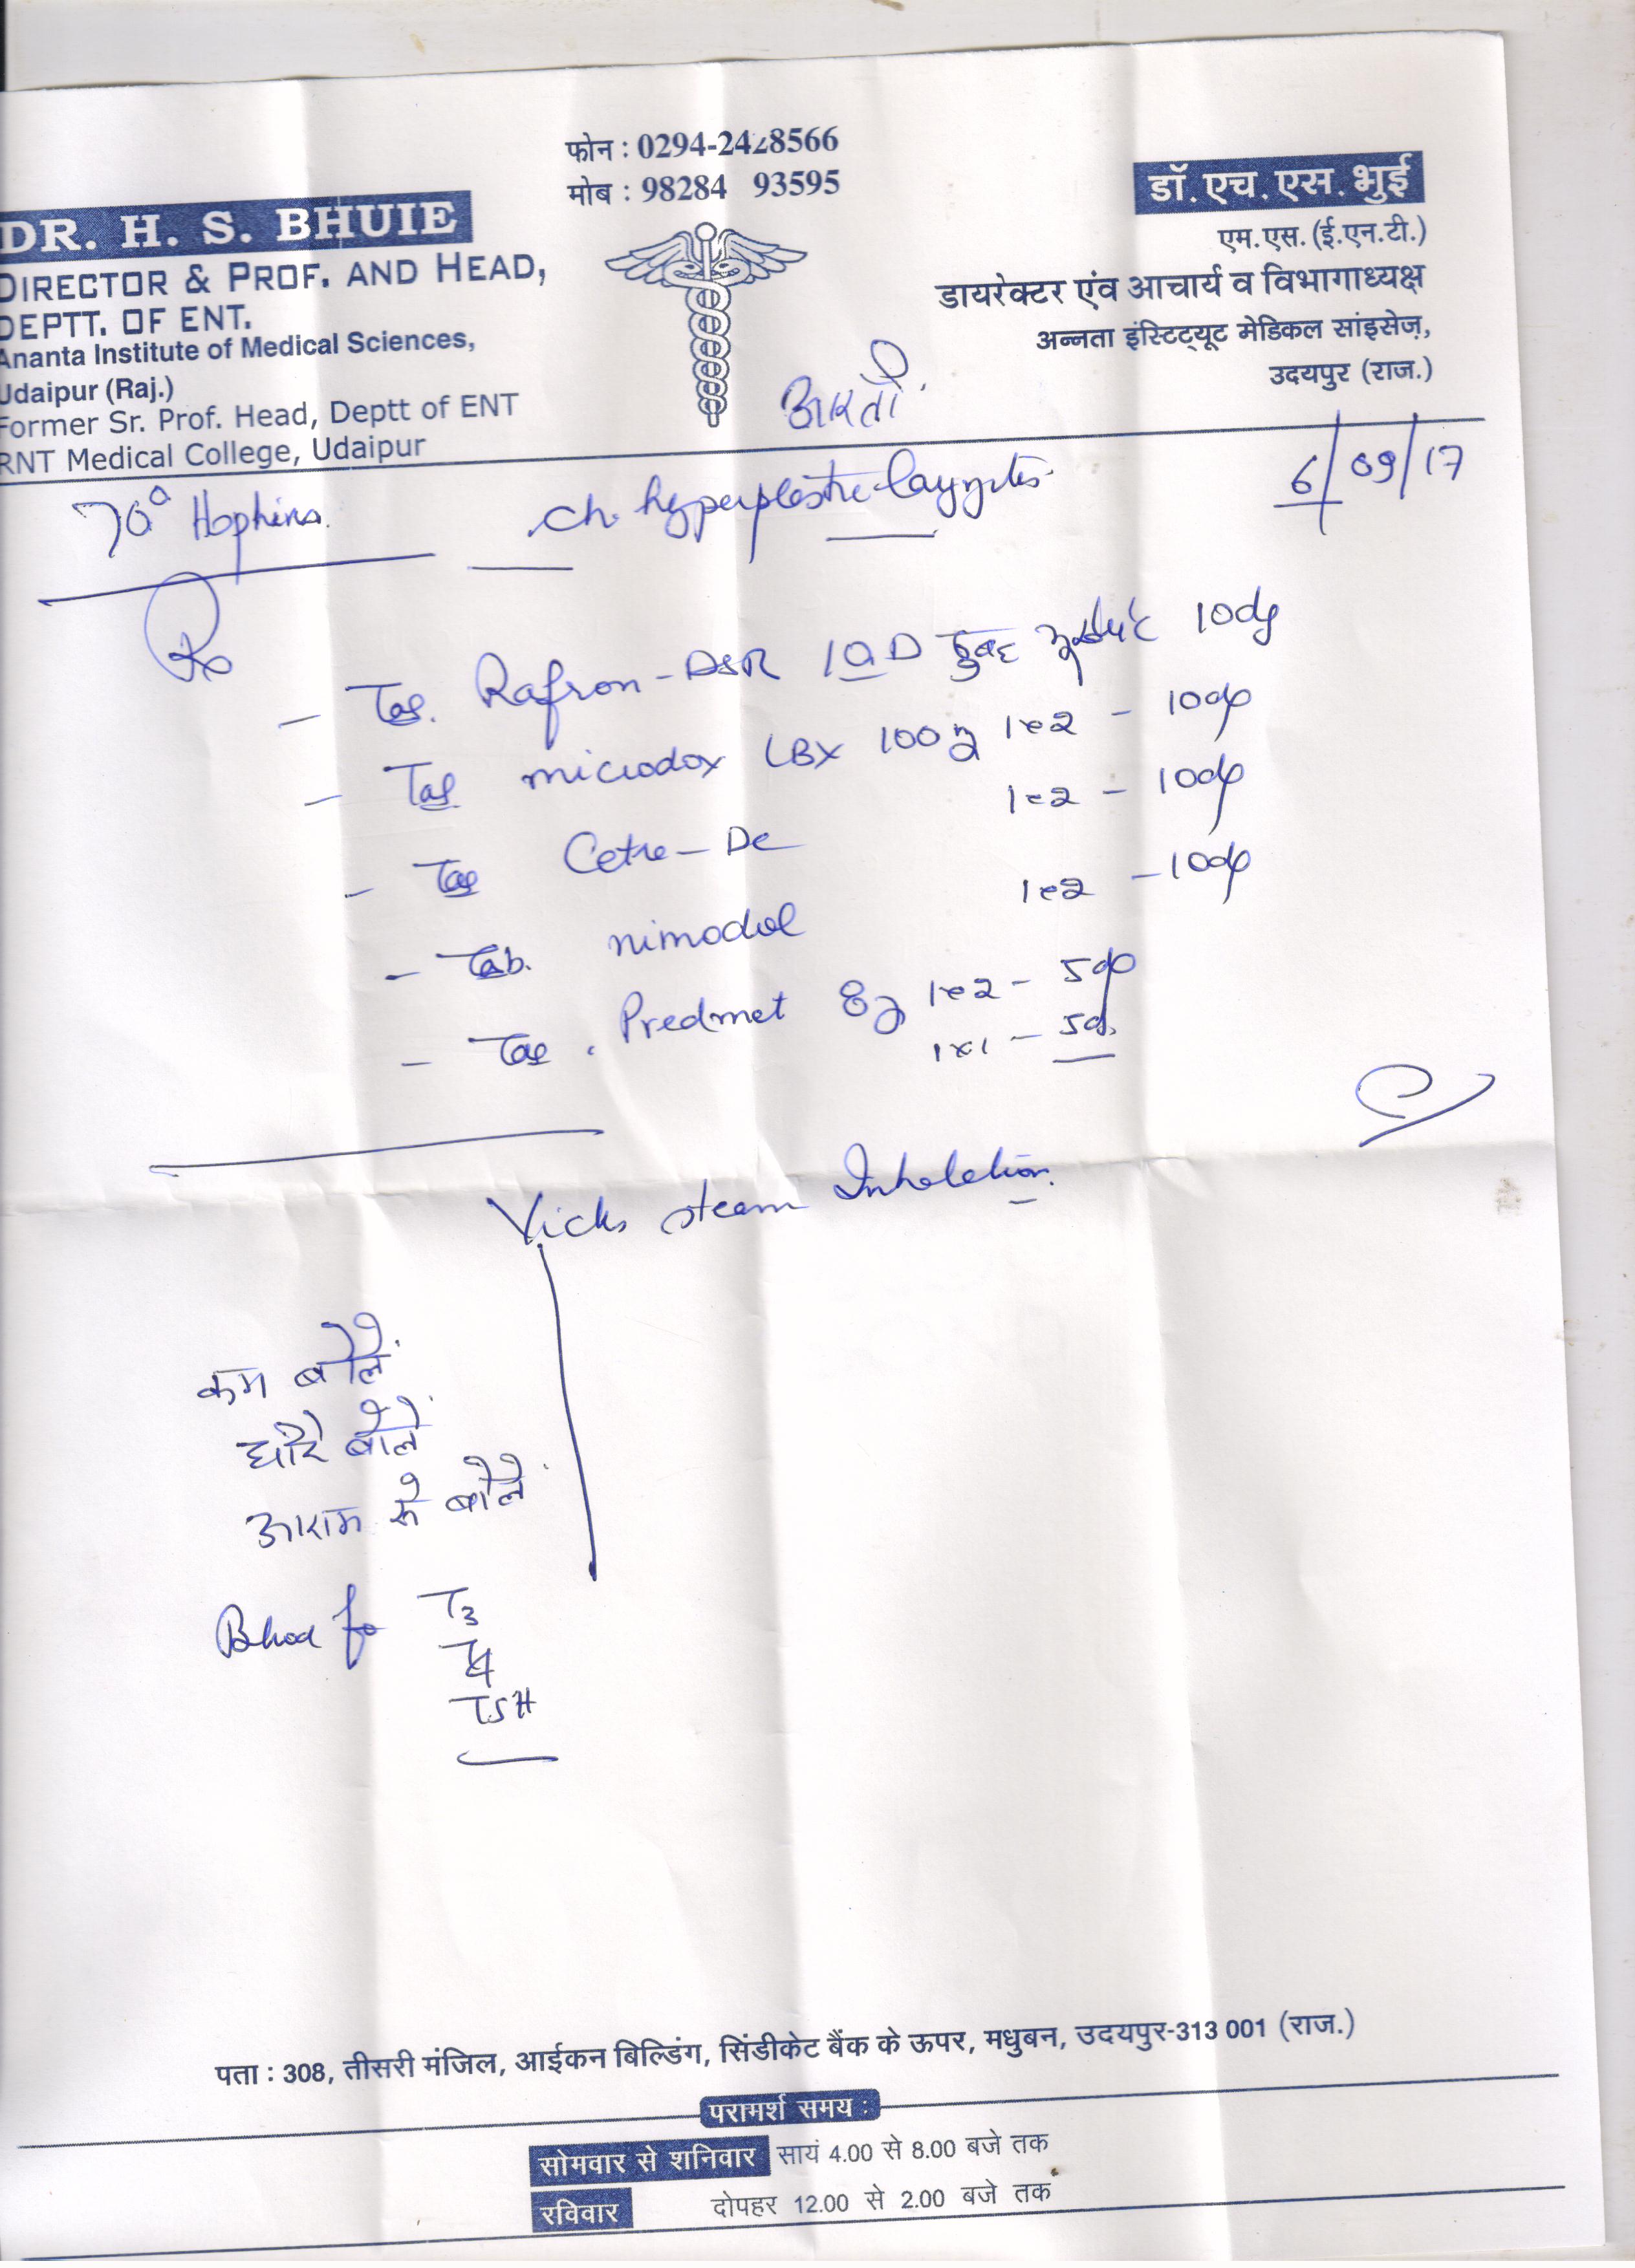 फोन : 0294-2428566
मोब : 98284 93595
DR. H. S. BHUIE
DIRECTOR & PROF. AND HEAD,
DEPTT. OF ENT.
Ananta Institute of Medical Sciences,
Udaipur (Raj.)
Former Sr. Prof. Head, Deptt of ENT
RNT Medical College, Udaipur
डॉ. एच. एस. भुई
एम.एस. (ई.एन.टी.)
डायरेक्टर एंव आचार्य व विभागाध्यक्ष
अन्नता इंस्टिट्यूट मेडिकल सांइसेज़,
उदयपुर (राज.)
आरती
6/09/17
70° Hopkins ch. hyperplastic laryngitis
Rx
- Tab. Rafron-DSR 1 OD सुबह 10dy
- Tab microdox LBX 100mg 1x2 - 10dy
- Tab Cetre-De 1x2 - 10dy
- Tab. nimodol 1x2 - 10dy
- Tab. Predmet 8mg 1x2 - 5dy
1x1 - 5d.
Vicks steam Inhalation
कम बोलें
धीरे बोलें
आराम से बोलें
Blood for T3
T4
TSH
पता : 308, तीसरी मंजिल, आईकन बिल्डिंग, सिंडीकेट बैंक के ऊपर, मधुबन, उदयपुर-313 001 (राज.)
परामर्श समय :
सोमवार से शनिवार सायं 4.00 से 8.00 बजे तक
रविवार दोपहर 12.00 से 2.00 बजे तक